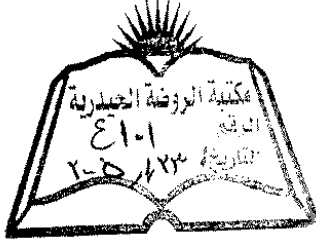 مكتبة الروضة الحيدرية
الرقم
٤١٠١
التاريخ